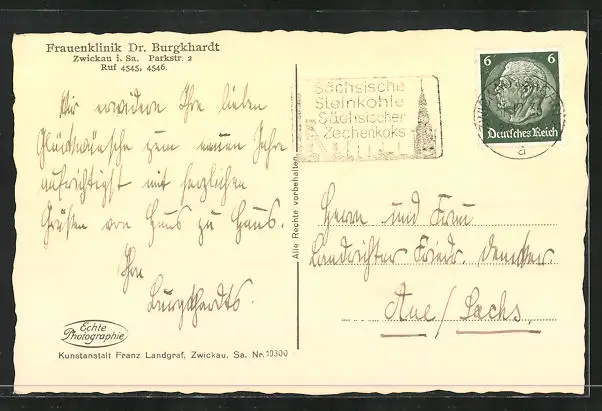 Frauenklinik Dr. Burgkhardt
Zwickau i. Sa. Parkstr. 2
Ruf 4545, 4546.
Wir erwidern Ihre lieben
Glückwünsche zum neuen Jahre
aufrichtigst mit herzlichen
Grüßen von Haus zu Haus.
Ihre
Burgkhardts.
Echte
Photographie
Kunstanstalt Franz Landgraf, Zwickau. Sa. Nr. 10300
Alle Rechte vorbehalten.
Sächsische
Steinkohle
Sächsischer
Zechenkoks
6 6
Deutsches Reich
a
Herrn und Frau
Landrichter Friedr.
Aue/Sachs.